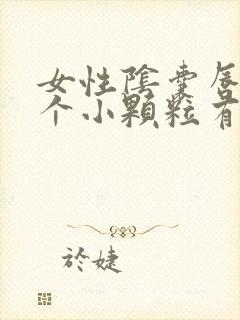 女性陰囊唇
个小顆粒有
於婕